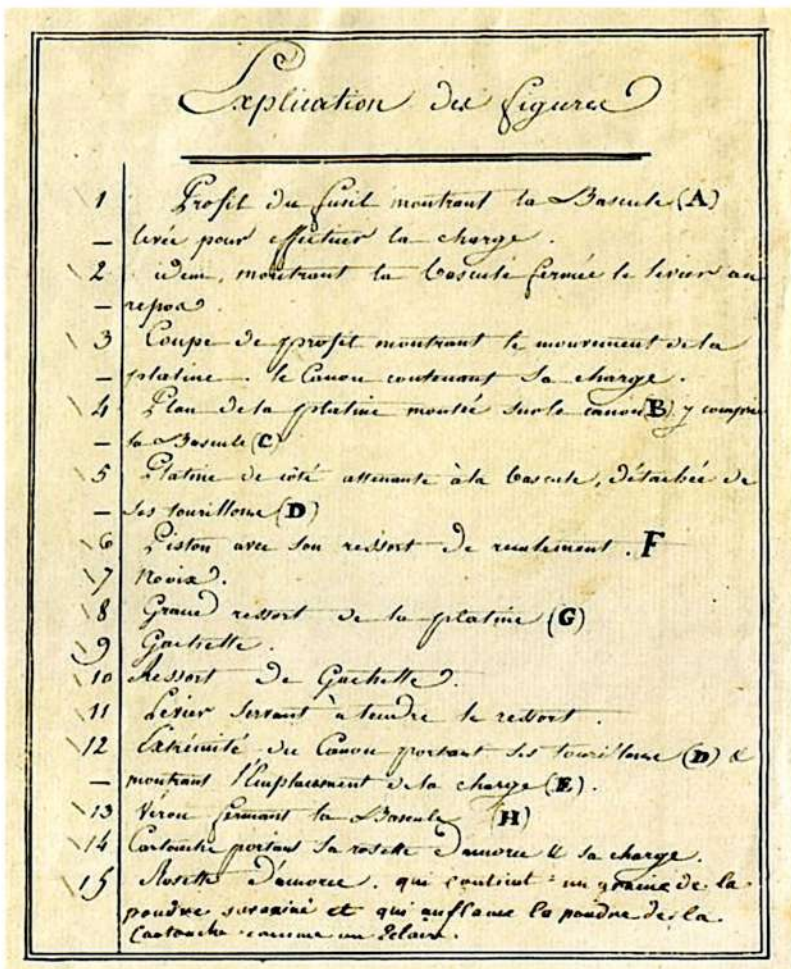 Explication des figures
1 Profil du fusil montrant la Bascule (A)
— levée pour effectuer la charge.
2 idem, montrant la bascule fermée le levier au
— repos.
3 Coupe de profil montrant le mouvement de la
— platine. le Canon contenant sa charge.
4 Plan de la platine montée sur le canon (B) y compris
— la Bascule (C)
5 Platine de côté attenante à la bascule, détachée de
— ses tourillons (D)
6 Piston avec son ressort de reculement. F
7 Noix.
8 Grand ressort de la platine (G)
9 Gachette.
10 Ressort de Gachette.
11 Levier servant à tendre le ressort.
12 Extrémité du Canon portant ses tourillons (D) &
— montrant l'Emplacement de la charge (E).
13 Vérou fermant la Bascule (H)
14 Cartouche portant sa rosette d'amorce & sa charge.
15 Rosette d'amorce. qui contient un graine de la
poudre et qui anflame la poudre de la
Cartouche comme un Eclair.